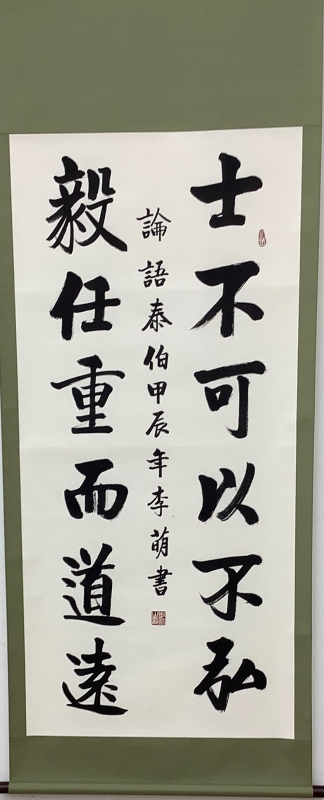 士不可以不弘
毅任重而道遠
論語泰伯甲辰年李萌書